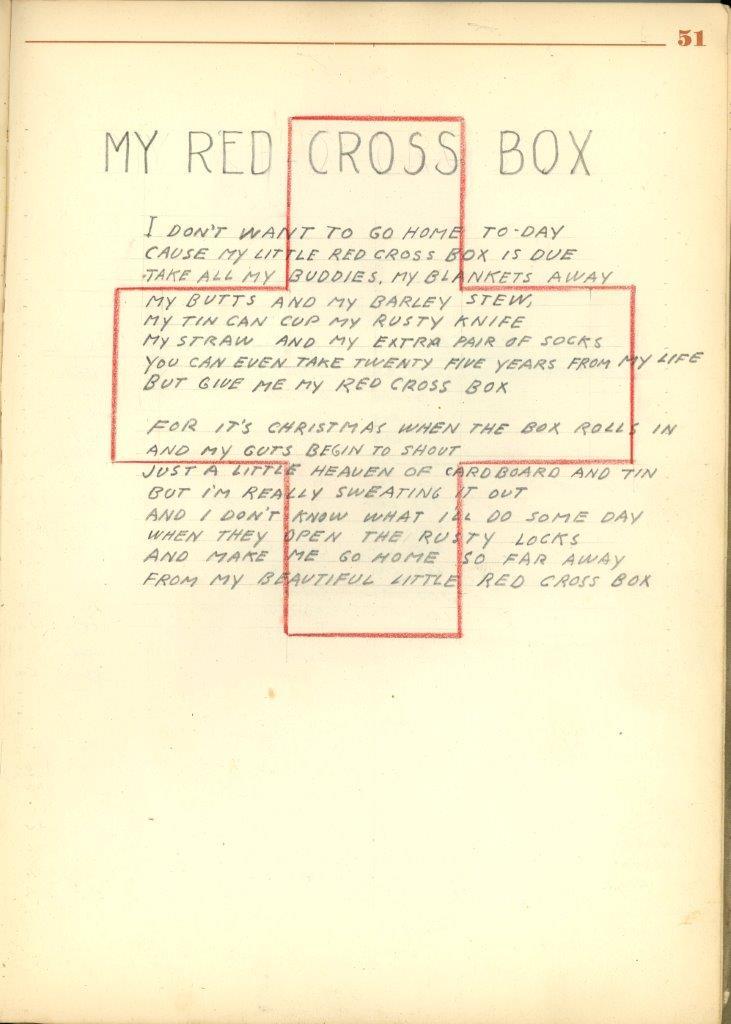 51
MY RED CROSS BOX
I DON'T WANT TO GO HOME TO-DAY
CAUSE MY LITTLE RED CROSS BOX IS DUE
TAKE ALL MY BUDDIES, MY BLANKETS AWAY
MY BUTTS AND MY BARLEY STEW,
MY TIN CAN CUP MY RUSTY KNIFE
MY STRAW AND MY EXTRA PAIR OF SOCKS
YOU CAN EVEN TAKE TWENTY FIVE YEARS FROM MY LIFE
BUT GIVE ME MY RED CROSS BOX
FOR IT'S CHRISTMAS WHEN THE BOX ROLLS IN
AND MY GUTS BEGIN TO SHOUT
JUST A LITTLE HEAVEN OF CARDBOARD AND TIN
BUT I'M REALLY SWEATING IT OUT
AND I DON'T KNOW WHAT I'LL DO SOME DAY
WHEN THEY OPEN THE RUSTY LOCKS
AND MAKE ME GO HOME SO FAR AWAY
FROM MY BEAUTIFUL LITTLE RED CROSS BOX